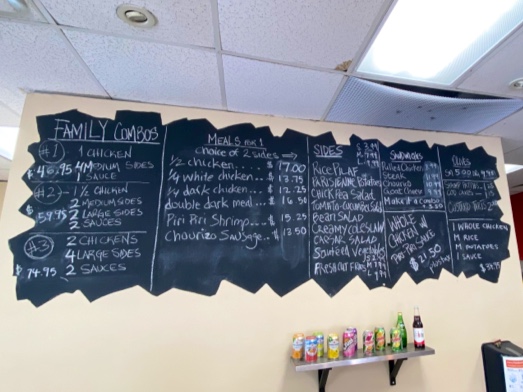 FAMILY COMBOS
#1) 1 CHICKEN
4 MEDIUM SIDES
$46.95 SAUCE
#2) 1 1/2 CHICKEN
2 MEDIUM SIDES
$59.95 2 LARGE SIDES
2 SAUCES
#3 2 CHICKENS
4 LARGE SIDES
$74.95 2 SAUCES
MEALS FOR 1
choice of 2 sides
1/2 chicken.... $ 17.00
1/4 white chicken.... $ 13.75
1/4 dark chicken.... $ 12.25
double dark meal... $ 16.50
Piri Piri Shrimp..... $ 15.25
Chourizo Sausage... $ 13.50
SIDES
RICE PILAF
PARISIENNE POTATOES
CHICK PEA SALAD
TOMATO-CUCUMBER SALAD
BEAN SALAD
CREAMY COLESLAW
CAESAR SALAD
Sautéed Vegetables
FRESH CUT FRIES
Sandwiches
Pulled Chicken
Steak
Chourizo
Make it a Combo
WHOLE
CHICKEN W/
PIRI PIRI SAUCE
$21.50
1 WHOLE CHICKEN
M. RICE
M. POTATOES
1 SAUCE